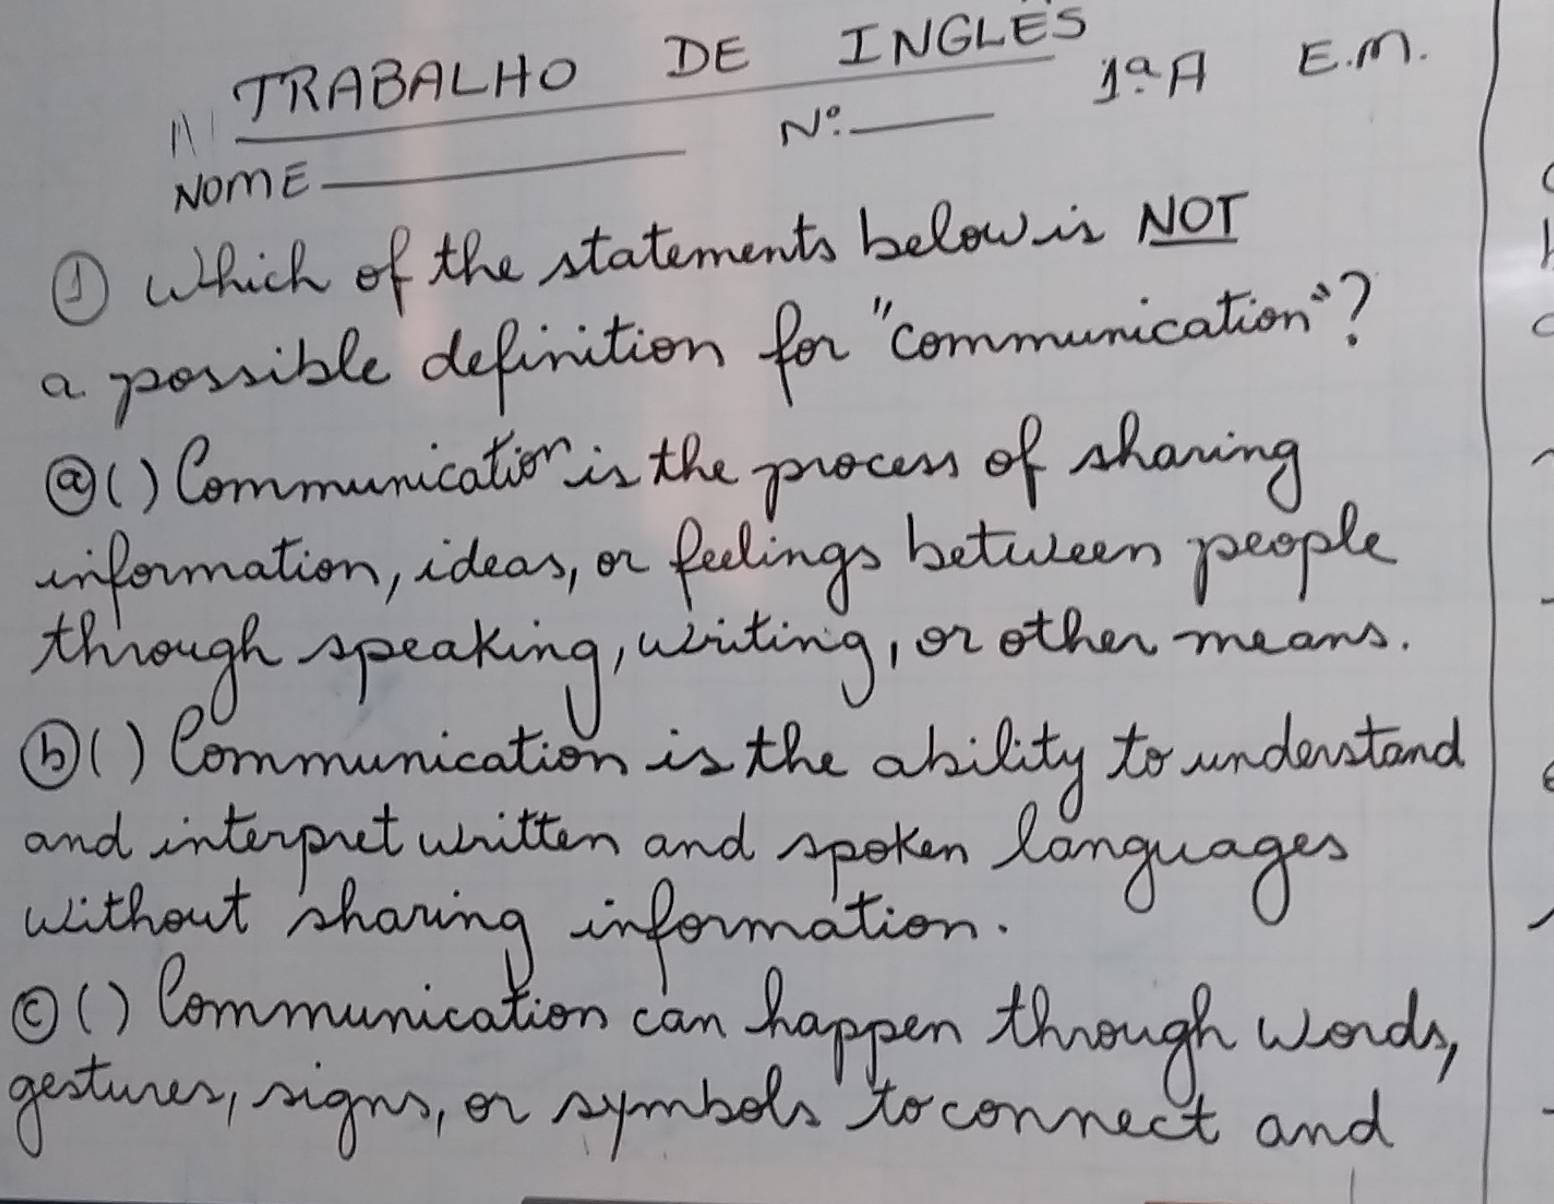 TRABALHO DE INGLÊS 1ª A E.M.
NOME Nº:
① Which of the statements below is NOT
a possible definition for "communication"?
ⓐ ( ) Communication is the process of sharing
information, ideas, or feelings between people
through speaking, writing, or other means.
ⓑ ( ) Communication is the ability to understand
and interpret written and spoken languages
without sharing information.
ⓒ ( ) Communication can happen through words,
gestures, signs, or symbols to connect and